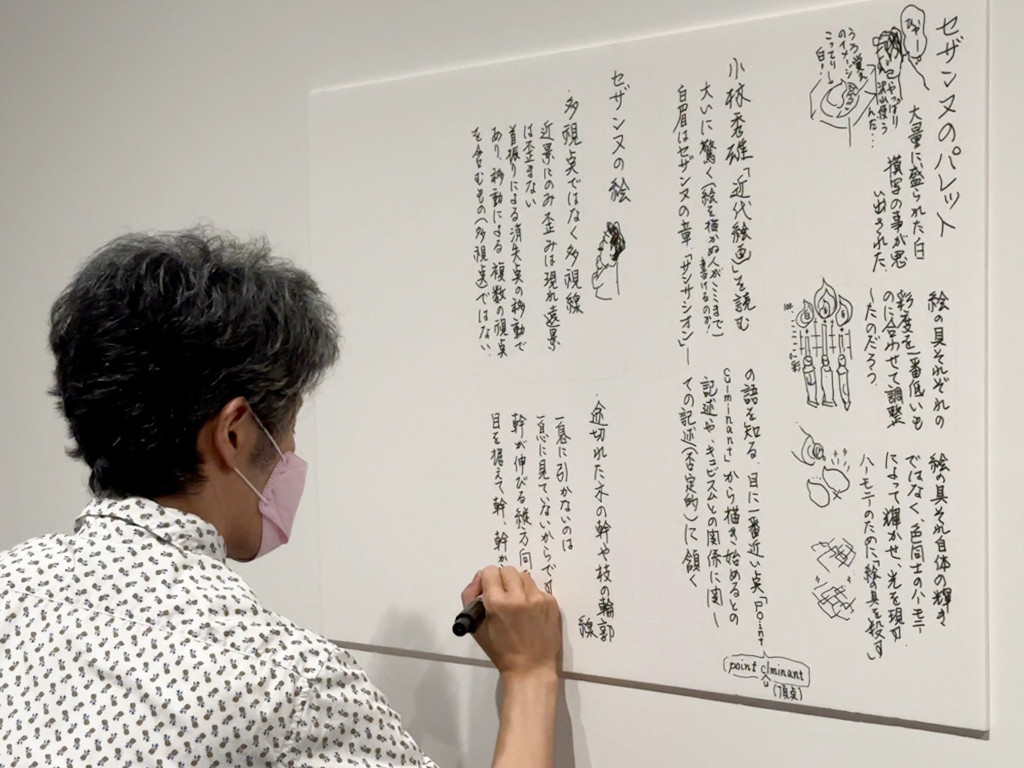 セザンヌのパレット
大量に盛られた白
模写の事が思
い出された、
ひゃー
やっぱり
沢山使う
んだ…
こってり
白！
絵の具それぞれの
彩度を一番低いも
のに合わせて調整
したのだろう。
絵の具それ自体の輝き
ではなく、色同士のハーモニー
によって輝かせ、光を現す
ハーモニーのために「絵の具を殺す」
小林秀雄「近代絵画」を読む
大いに驚く(絵を描かぬ人がここまで
書けるのか!)
白眉はセザンヌの章、「サンサシオン」
の語を知る、目に一番近い点「point
culminant」から描き始めるとの
記述や、キュビスムとの関係に関し
ての記述(否定的)に頷く
point culminant
(頂点)
セザンヌの絵
・多視点ではなく多視線
近景にのみ歪みは現れ遠景
は歪まない
首振りによる消失点の移動で
あり、移動による複数の視点
を含むもの(多視点)ではない
・途切れた木の幹や枝の輪郭
線
一息に引かないのは
一息に見ていないからで
幹が伸びる縦方向
目を据えて幹、幹か